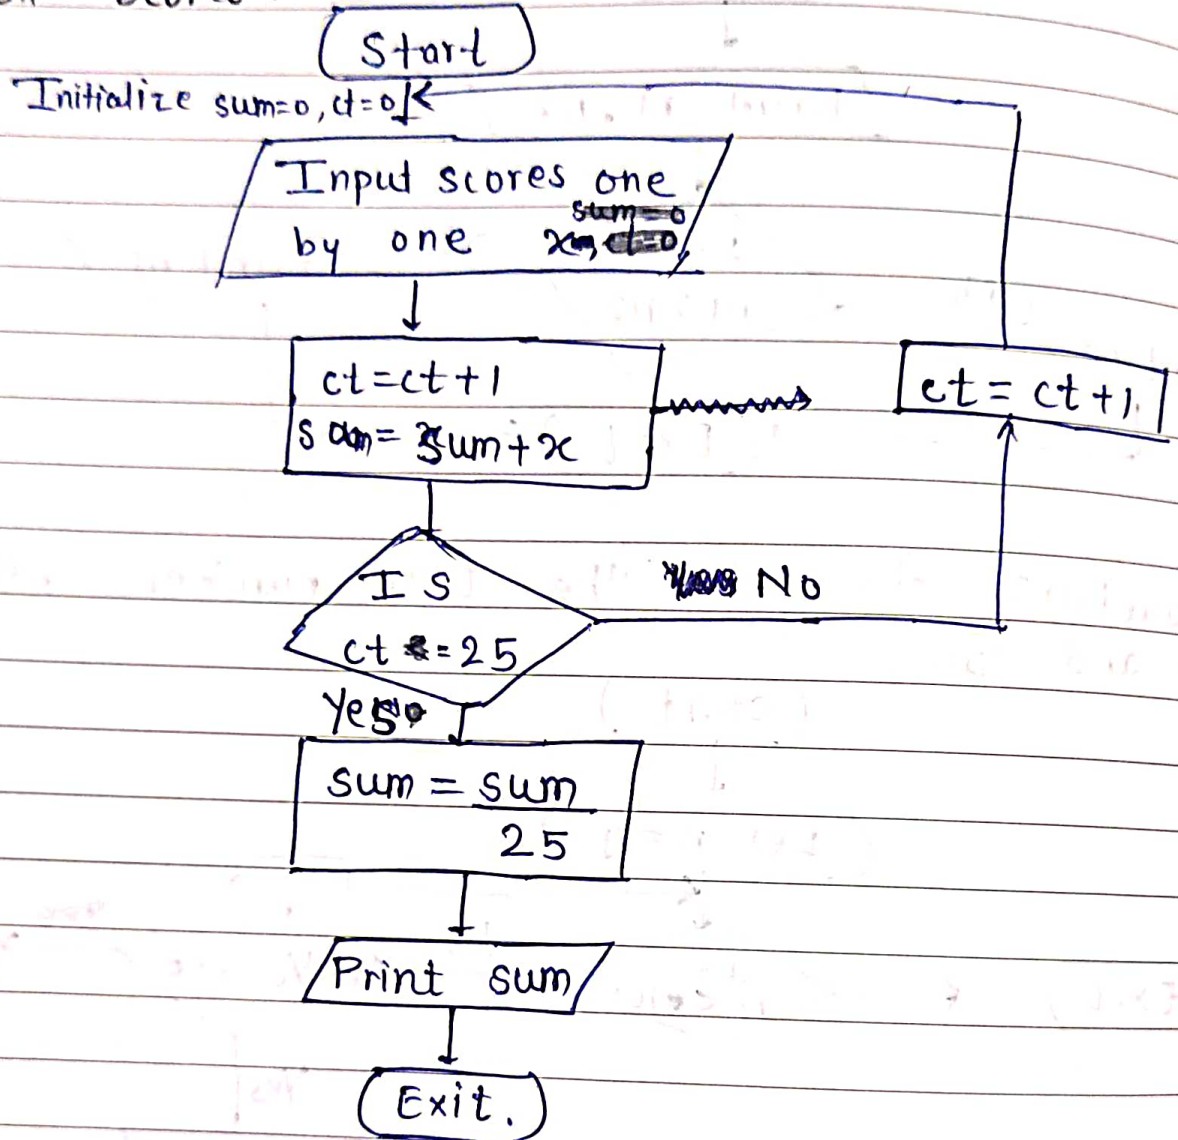 Start
Initialize sum=0, ct=0
Input scores one
by one x
ct=ct+1
sum= sum+x
ct= ct+1
IS
ct = 25
No
Yes
sum = sum
25
Print sum
Exit.